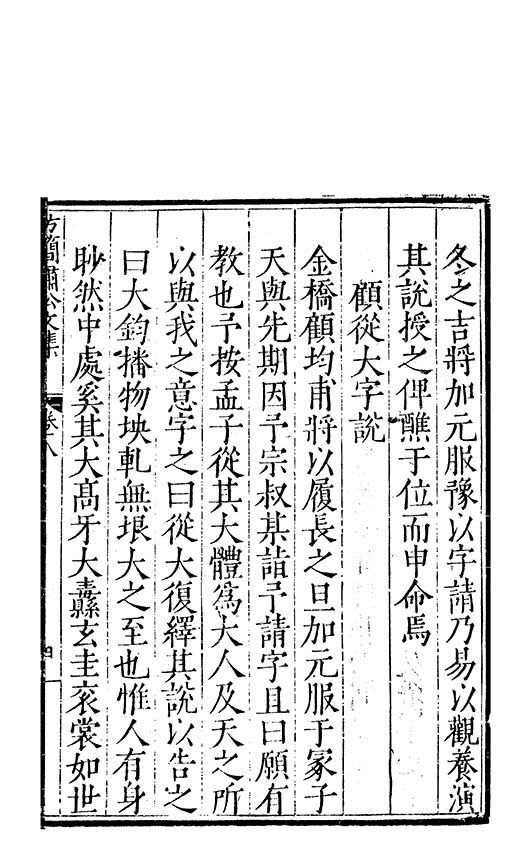 冬之吉將加元服豫以字請乃易以觀養演
其說授之俾醮于位而申命焉
顧從大字說
金橋顧均甫將以履長之旦加元服于冢子
天與先期因予宗叔某詣予請字且曰願有
教也予按孟子從其大體爲大人及天之所
以與我之意字之曰從大復繹其說以告之
曰大鈞播物坱軋無垠大之至也惟人有身
眇然中處奚其大高牙大纛玄圭衮裳如世
方簡肅公文集
卷八
四